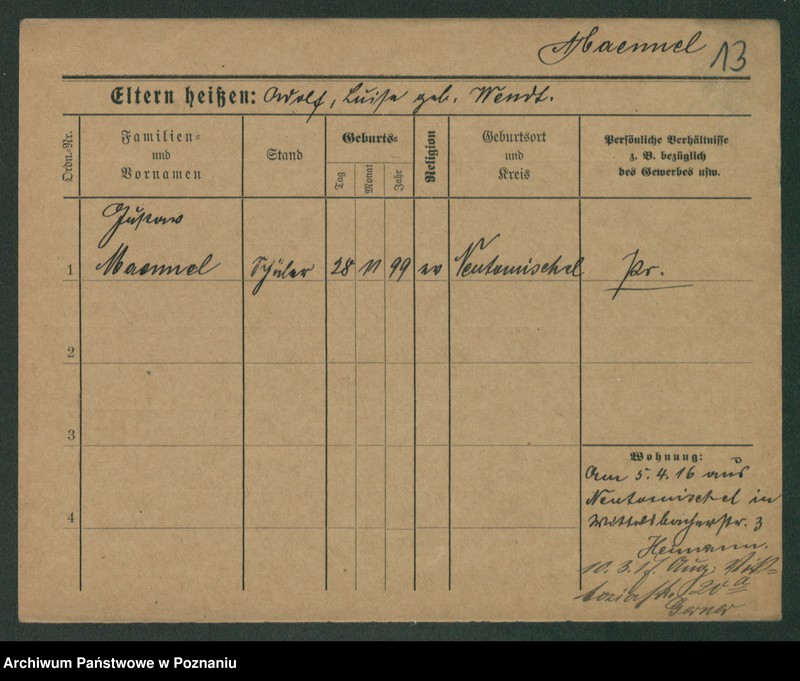 Maennel 13
Eltern heißen: Adolf, Luise geb. Wendt.
Ordn.-Nr.
Familien- und Vornamen
Stand
Geburts-
Tag
Monat
Jahr
Religion
Geburtsort und Kreis
Persönliche Verhältnisse z. B. bezüglich des Gewerbes usw.
Gustav
1 Maennel Schüler 28 11 99 ev Neutomischel Pr.
2
3
4
Wohnung:
Am 5.4.16 aus
Neutomischel in
Wittelsbacherstr. 3
Heumann.
10.3.17. Aug. Vik-
toriastr. 20a
Gerner
Archiwum Państwowe w Poznaniu